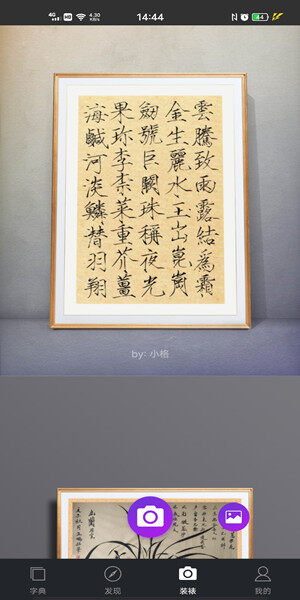 4G HD 4.30 KB/S 14:44 44
雲騰致雨露結爲霜
金生麗水玉出崑崗
劔號巨闕珠稱夜光
果珎李柰菜重芥薑
海鹹河淡鱗潛羽翔
by: 小格
字典 发现 装裱 我的